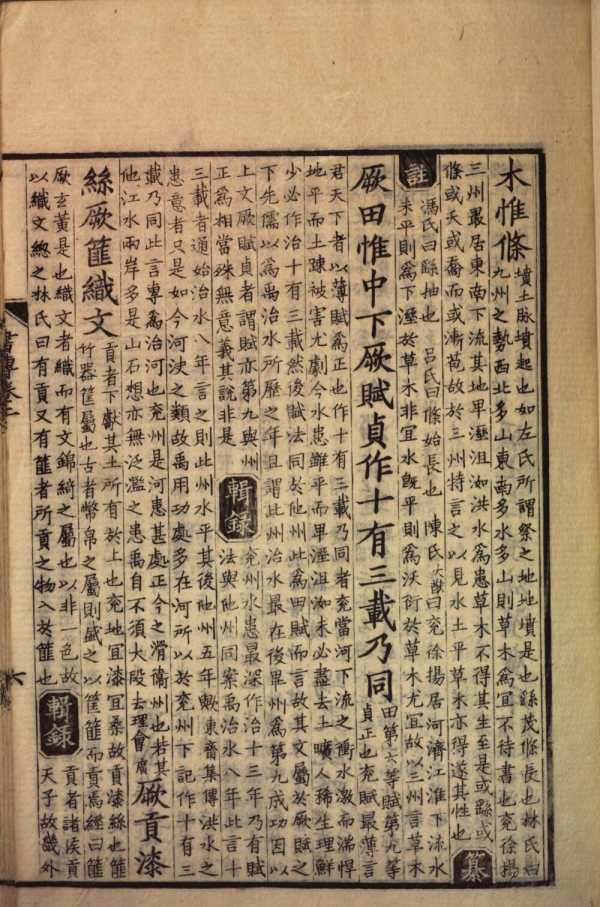 木惟條
墳土脉墳起也如左氏所謂祭之地地墳是也繇茂條長也林氏曰
九州之勢西北多山東南多水多山則草木為宜不待書也兖徐揚
三州最居東南下流其地卑溼沮洳洪水為患草木不得其生至是或繇或
條或夭或喬而或漸苞故於三州特言之以見水土平草木亦得遂其性也
纂
註
馮氏曰繇抽也　呂氏曰條始長也　陳氏大猷曰兖徐揚居河濟江淮下流水
未平則為下溼於草木非宜水旣平則為沃衍於草木尤宜故以三州言草木
厥田惟中下厥賦貞作十有三載乃同
田第六等賦第九等
貞正也兖賦最薄言
君天下者以薄賦為正也作十有三載乃同者兖當河下流之衝水激而湍悍
地平而土疎被害尤劇今水患雖平而卑溼沮洳未必盡去土曠人稀生理鮮
少必作治十有三載然後賦法同於他州此為田賦而言故其文屬於厥賦之
下先儒以為禹治水所歷之年且謂此州治水最在後畢州為第九成功因以
上文厥賦貞者謂賦亦第九與州
正為相當殊無意義其說非是
輯録
兖州水患最深作治十三年乃有賦
法與他州同案禹治水八年此言十
三載者通始治水八年言之則此州水平其後他州五年歟東齋集傳洪水之
患意者只是如今河決之類故禹用功處多在河所以於兖州下記作十有三
載乃同此言專為治河也兖州是河患甚處正今之滑衛州也若其
他江水兩岸多是山石想亦無泛濫之患禹自不須大段去理會廣
厥貢漆
絲厥篚織文
貢者下獻其土所有於上也兖地宜漆宜桑故貢漆絲也篚
竹器筐屬也古者幣帛之屬則盛之以筐篚而貢焉經曰篚
厥玄黃是也織文者織而有文錦綺之屬也以非一色故
以織文總之林氏曰有貢又有篚者所貢之物入於篚也
輯録
貢者諸侯貢
天子故畿外
六